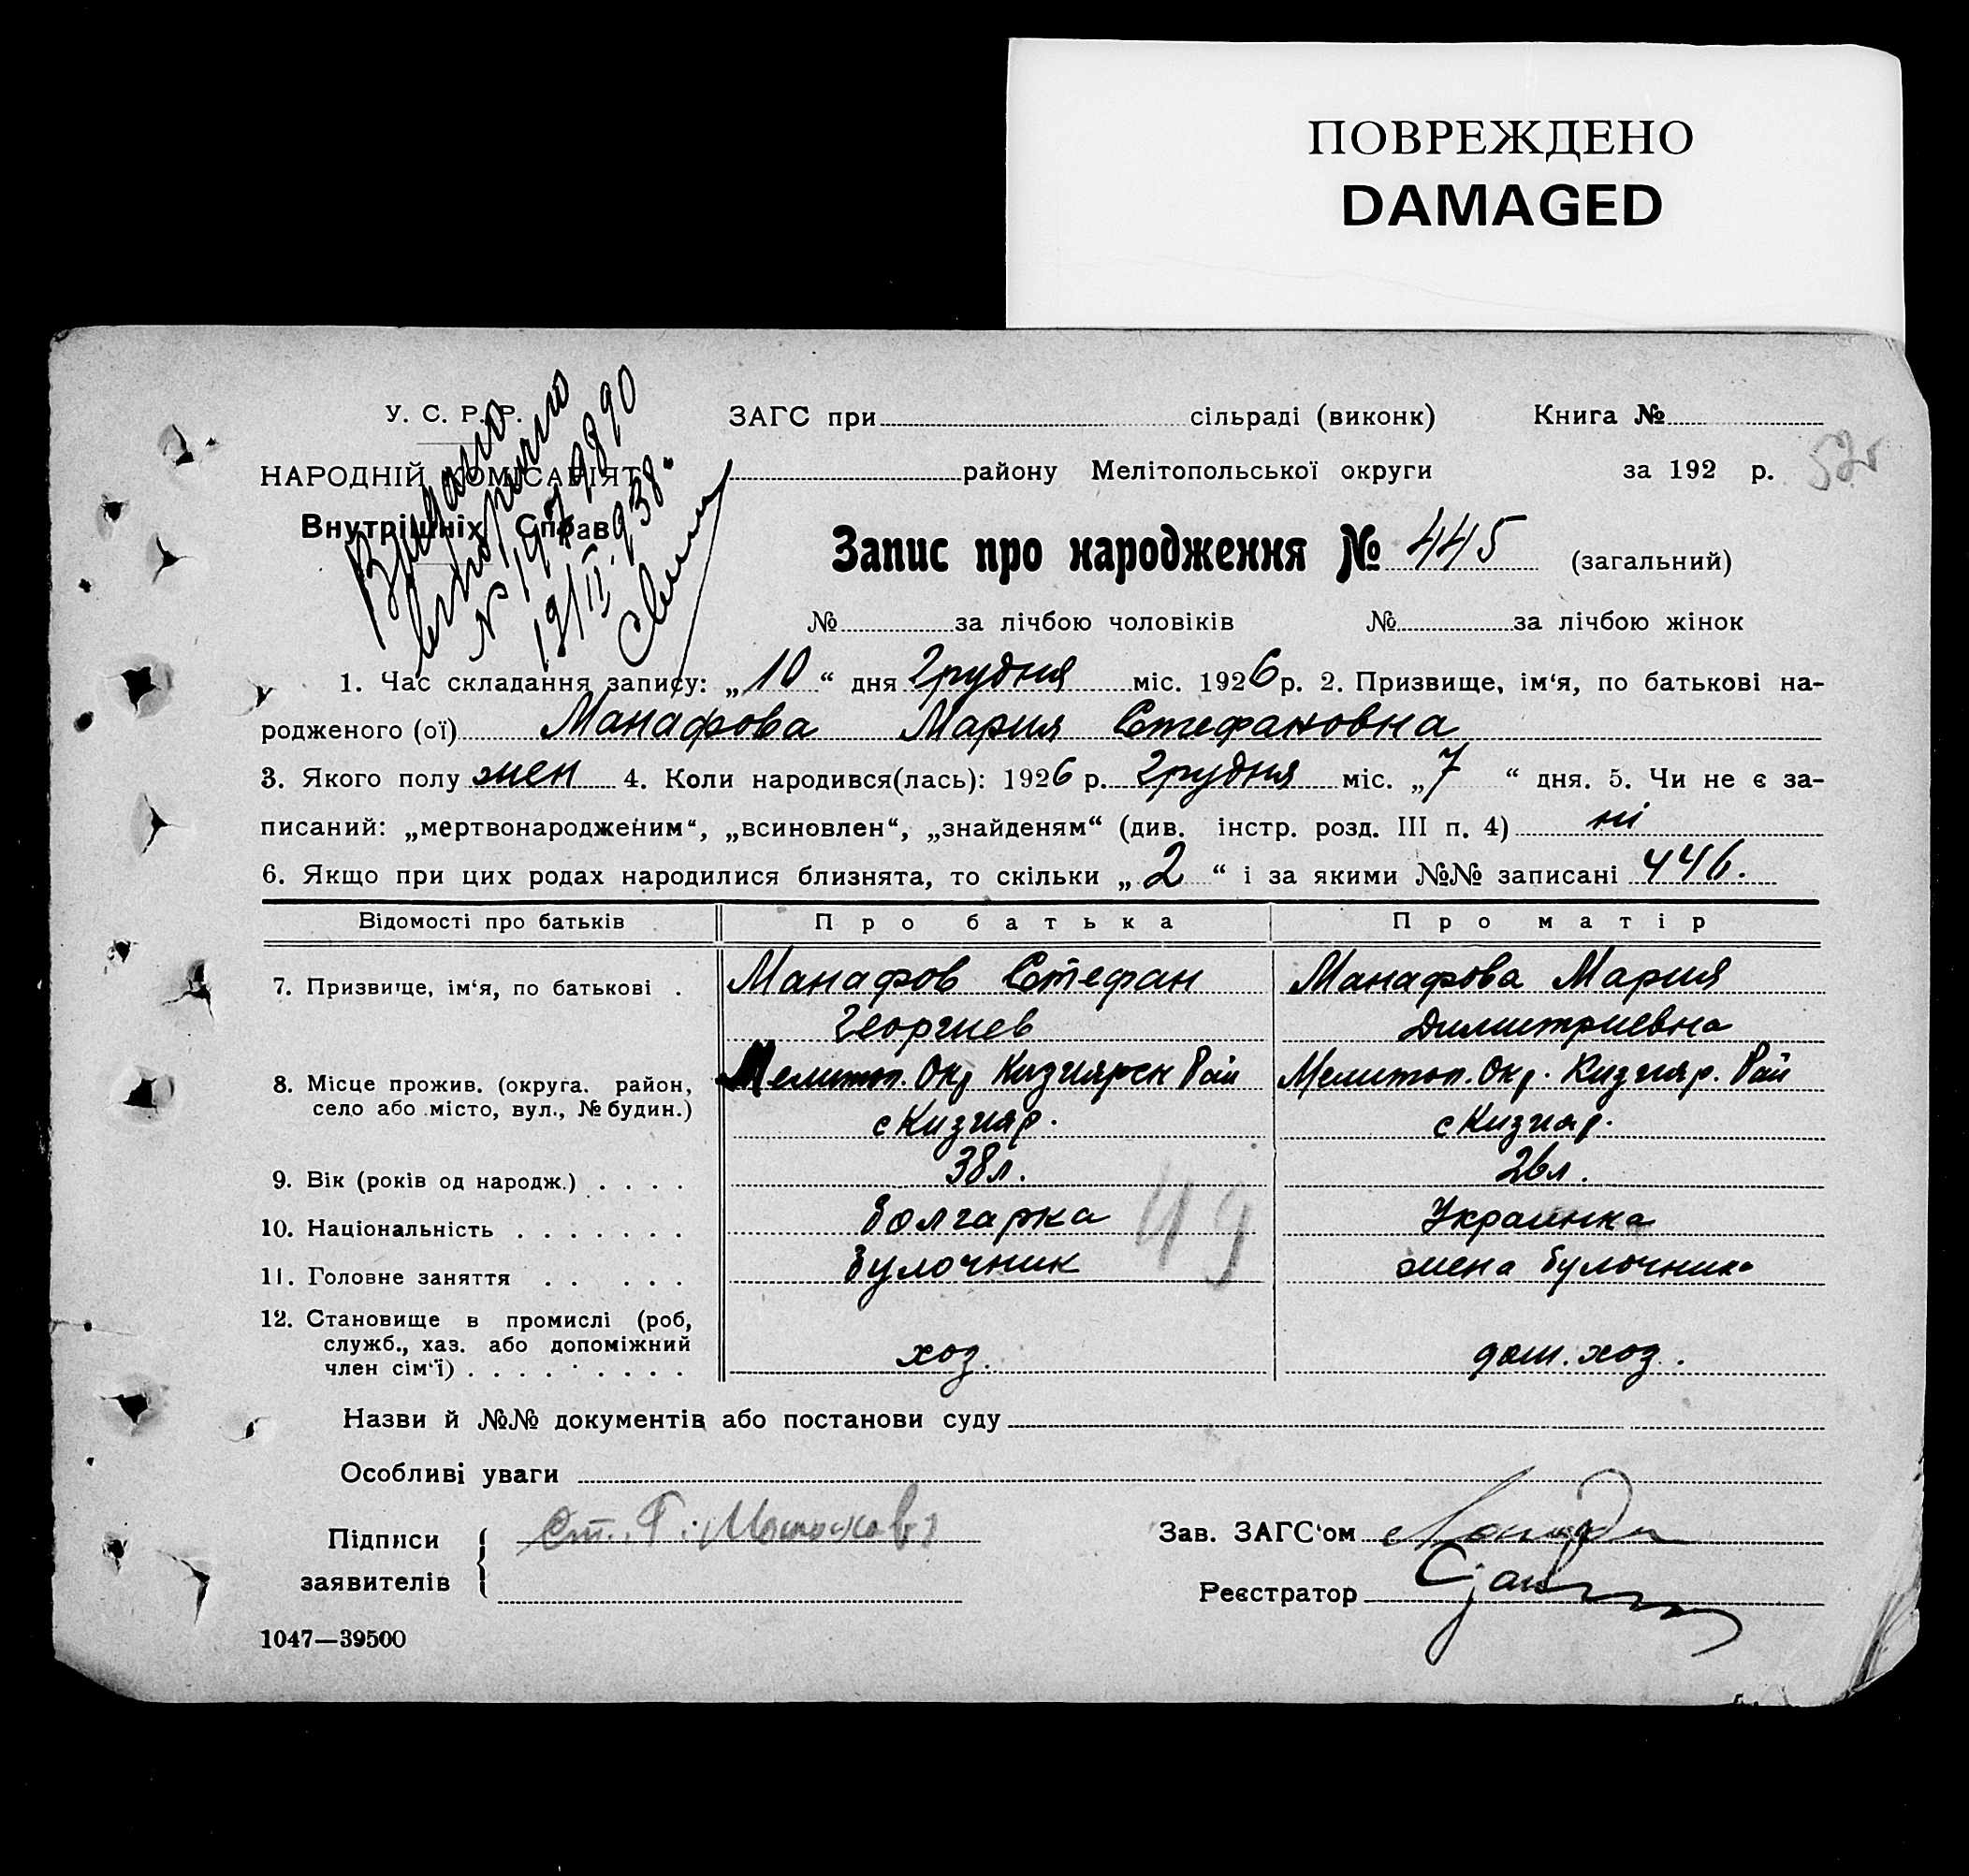 ПОВРЕЖДЕНО
DAMAGED
У. С. Р. Р.
НАРОДНІЙ КОМІСАРІЯТ
Внутрішніх Справ
Видано
№ 197890
19/II 938
ЗАГС при сільраді (виконк) Книга №
району Мелітопольської округи за 192 р.
Запис про народження № 445 (загальний)
№ за лічбою чоловіків № за лічбою жінок
1. Час складання запису: „10“ дня Грудня міс. 1926 р. 2. Призвище, ім‘я, по батькові на-
родженого (ої) Манафова Мария Стефановна
3. Якого полу жен 4. Коли народився(лась): 1926 р. Грудня міс. „7“ дня. 5. Чи не є за-
писаний: „мертвонародженим“, „всиновлен“, „знайденям“ (див. інстр. розд. III п. 4) ні
6. Якщо при цих родах народилися близнята, то скільки „2“ і за якими №№ записані 446.
Відомості про батьків Про батька Про матір
7. Призвище, ім‘я, по батькові . Манафов Стефан Манафова Мария
Георгиев Димитриевна
8. Місце прожив. (округа. район, Мелитоп. Окр Кизиярск Рай Мелитоп. Окр. Кизияр. Рай
село або місто, вул., № будин.) с Кизияр. с Кизияр.
9. Вік (років од народж.) . . . . 38 л. 26 л.
10. Національність . . . . . . . Болгарка Украинка
49
11. Головне заняття . . . . . Булочник жена булочника
12. Становище в промислі (роб,
служб., хаз. або допоміжний
член сім‘ї) . . . . . . . . хоз. дом. хоз.
Назви й №№ документів або постанови суду
Особливі уваги
Підписи Ст. Г. Зав. ЗАГС‘ом
заявителів Реєстратор
1047—39500